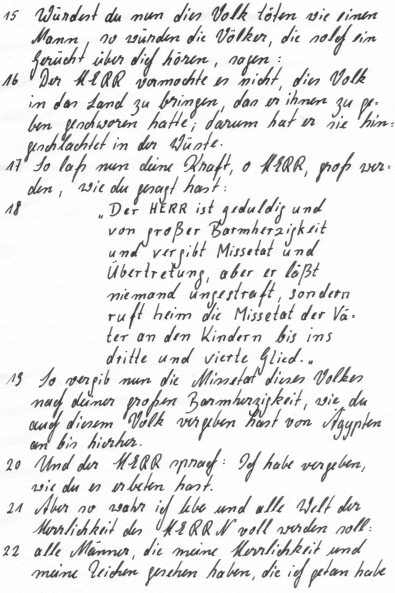 15 Würdest du nun dies Volk töten wie einen
Mann, so würden die Völker, die solch ein
Gerücht über dich hören, sagen:
16 Der HERR vermochte es nicht, dies Volk
in das Land zu bringen, das er ihnen zu ge-
ben geschworen hatte; darum hat er sie hin-
geschlachtet in der Wüste.
17 So laß nun deine Kraft, o HERR, groß wer-
den, wie du gesagt hast:
18 „Der HERR ist geduldig und
von großer Barmherzigkeit
und vergibt Missetat und
Übertretung, aber er läßt
niemand ungestraft, sondern
sucht heim die Missetat der Vä-
ter an den Kindern bis ins
dritte und vierte Glied.„
19 So vergib nun die Missetat dieses Volkes
nach deiner großen Barmherzigkeit, wie du
auch diesem Volk vergeben hast von Ägypten
an bis hierher.
20 Und der HERR sprach: Ich habe vergeben,
wie du es erbeten hast.
21 Aber so wahr ich lebe und alle Welt der
Herrlichkeit des HERRN voll werden soll:
22 alle Männer, die meine Herrlichkeit und
meine Zeichen gesehen haben, die ich getan habe